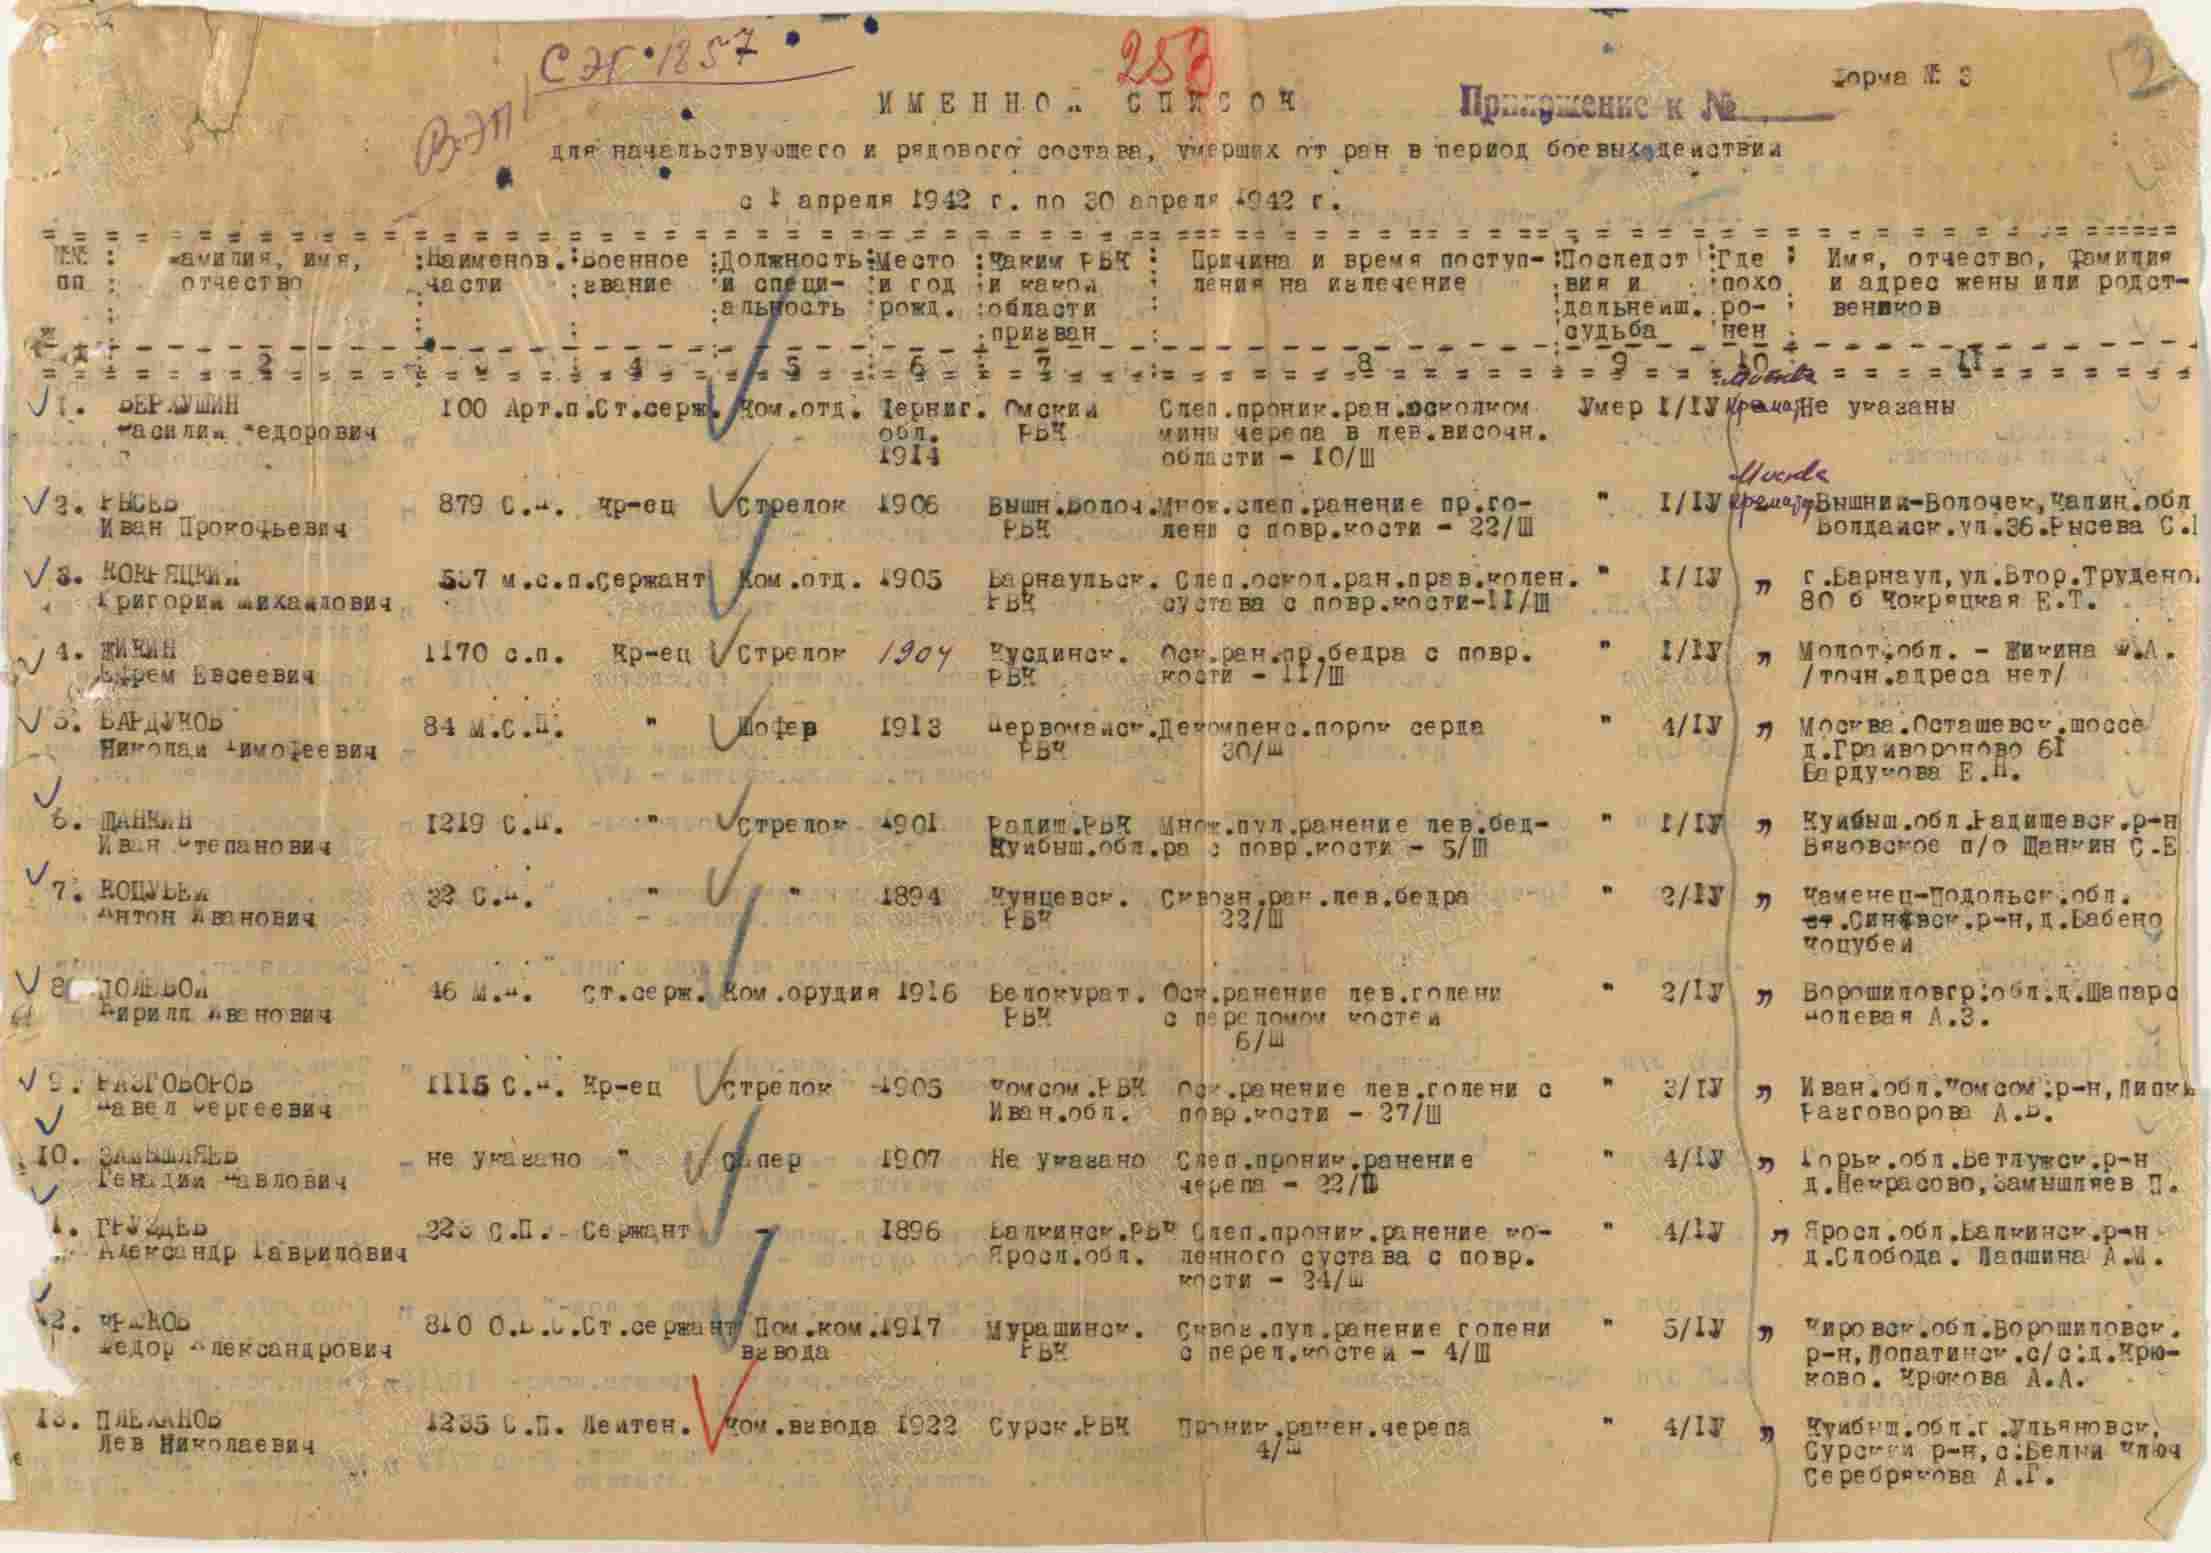 СЭГ 1857
253
Форма № 3
ВЭП
ИМЕННОЙ СПИСОК
Приложение к №
для начальствующего и рядового состава, умерших от ран в период боевых действий
с 1 апреля 1942 г. по 30 апреля 1942 г.
№№ : Фамилия, имя, :Наименов.:Военное :Должность:Место :Каким РВК : Причина и время поступ-:Последст :Где : Имя, отчество, Фамилия
пп : отчество части :звание :и специ- :и год :и какой : ления на излечение :вия и :похо : и адрес жены или родст-
:альность рожд. :области :дальнейш. ро- : веников
:призван :судьба нен
2 4 5 6 7 8 9 10 11
Москва
1. ВЕРХУШИН 100 Арт.п.Ст.серж. Ком.отд. Черниг. Омский Слеп.проник.ран.осколком Умер I/IУ Кремат. Не указаны
Василий Федорович обл. РВК мины черепа в лев.височн.
1914 области - 10/Ш
Москва
2. РЫСЕВ 879 С.П. Кр-ец Стрелок 1906 Вышн.Волоч.Множ.слеп.ранение пр.го- " I/IУ Кремат. Вышний-Волочек,Калин.обл
Иван Прокофьевич РВК лени с повр.кости - 22/Ш Болдайск.ул.36.Рысева С.
3. КОКРЯЦКИЙ 557 м.с.п.Сержант Ком.отд. 1905 Барнаульск. Слеп.оскол.ран.прав.колен. " I/IУ " г.Барнаул,ул.Втор.Трудено.
Григорий Михайлович РВК сустава с повр.кости-II/Ш 80 б Кокряцкая Е.Т.
4. ЖИКИН 1170 с.п. Кр-ец Стрелок 1904 Кусдинск. Оск.ран.пр.бедра с повр. " I/IУ " Молот.обл. - Жикина Ф.А.
Ефрем Евсеевич РВК кости - II/Ш /точн.адреса нет/
5. БАРДУКОВ 84 М.С.П. " Шофер 1913 Первомайск.Декомпенс.порок серца " 4/IУ " Москва.Осташевск.шоссе
Николай Тимофеевич РВК 30/Ш д.Грайвороново 61
Бардукова Е.Н.
6. ЩАНКИН 1219 С.П. " Стрелок 1901 Радищ.РВК Множ.пул.ранение лев.бед- " I/IУ " Куйбыш.обл.Радищевск.р-н
Иван Степанович Куйбыш.обл.ра с повр.кости - 5/Ш Вязовское п/о Щанкин С.Е
7. КОЦУБЕЙ 32 С.П. " " 1894 Кунцевск. Сквозн.ран.лев.бедра " 2/IУ " Каменец-Подольск.обл.
Антон Иванович РВК 22/Ш ст.Синявск.р-н,д.Бабено
Коцубей
8. ПОЛЕВОЙ 46 М.П. ст.серж. Ком.орудия 1916 Белокурат. Оск.ранение лев.голени " 2/IУ " Ворошиловгр.обл.д.Шапарс
Кирилл Иванович РВК с переломом костей Полевая А.З.
6/Ш
9. РАЗГОВОРОВ 1115 С.П. Кр-ец Стрелок 1905 Комсом.РВК Оск.ранение лев.голени с " 3/IУ " Иван.обл.Комсом.р-н,Липки
Павел Сергеевич Иван.обл. повр.кости - 27/Ш Разговорова А.В.
10. ЗАМЫШЛЯЕВ не указано " Сапер 1907 Не указано Слеп.проник.ранение " 4/IУ " Горьк.обл.Ветлужск.р-н
Генадий Павлович черепа - 22/Ш д.Некрасово,Замышляев П.
1. ГРУЗДЕВ 223 С.П. Сержант - 1896 Валкинск.РВК Слеп.проник.ранение ко- " 4/IУ " Яросл.обл.Валкинск.р-н
Александр Гаврилович Яросл.обл. ленного сустава с повр. д.Слобода. Лапшина А.М.
кости - 24/Ш
2. КРЮКОВ 810 О.В.С.Ст.сержант Пом.ком.1917 Мурашинск. Сквоз.пул.ранение голени " 5/IУ " Кировск.обл.Ворошиловск.
Федор Александрович взвода РВК с перел.костей - 4/Ш р-н,Лопатинск.с/с.д.Крю-
ково. Крюкова А.А.
13. ПЛЕХАНОВ 1235 С.П. Лейтен. Ком.взвода 1922 Сурск.РВК Проник.ранен.черепа " 4/IУ " Куйбыш.обл.г.Ульяновск,
Лев Николаевич 4/Ш Сурский р-н,с.Белый Ключ
Серебрякова А.Г.